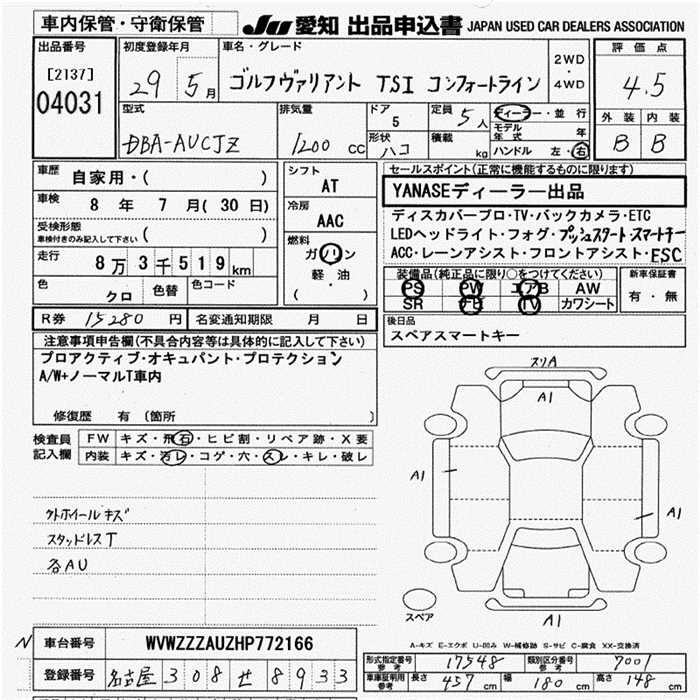 車内保管・守衛保管
JU 愛知 出品申込書 JAPAN USED CAR DEALERS ASSOCIATION
出品番号
[2137]
04031
初度登録年月
29 5月
車名・グレード
ゴルフヴァリアント TSI コンフォートライン
2WD
・
4WD
評価点
4.5
外装 内装
B B
型式
DBA-AUCJZ
排気量
1200 CC
ドア
5
形状
ハコ
定員
5人
積載
kg
ディーラー・並行
モデル年式 年
ハンドル 左・右
車歴
自家用・( )
車検
8 年 7 月( 30 日)
受検形態
車検付きのみ記入して下さい ( )
走行
8万3千519km
色
クロ
色替
色コード
シフト
AT
冷房
AAC
燃料
ガソリン
軽・油
( )
セールスポイント(正常に機能するものに限ります)
YANASEディーラー出品
ディスカバープロ・TV・バックカメラ・ETC
LEDヘッドライト・フォグ・プッシュスタート・スマートキー
ACC・レーンアシスト・フロントアシスト・ESC
装備品(純正品に限り○をつけてください)
PS PW エアB AW
SR ナビ TV カワシート
新車保証書
有・無
R券 15280 円
名変通知期限 月 日
後日品
スペアスマートキー
注意事項申告欄(不具合内容等は具体的に記入して下さい)
プロアクティブ・オキュパント・プロテクション
A/W+ノーマルT車内
修復歴 有 〔箇所 〕
検査員記入欄
FW キズ・飛石・ヒビ割・リペア跡・X要
内装 キズ・汚レ・コゲ・穴・スレ・キレ・破レ
外ホイールキズ
スタッドレスT
各AU
スリA
A1
A1
A1
A1
スペア
A-キズ E-エクボ U-凹み W-補修跡 S-サビ C-腐食 XX-交換済
N 車台番号 WVWZZZAUZHP772166
登録番号 名古屋 308 せ 8933
形式指定番号 参考 17548 類別区分番号 参考 7001
車庫証明用参考 長さ 457 cm 幅 180 cm 高さ 148 cm